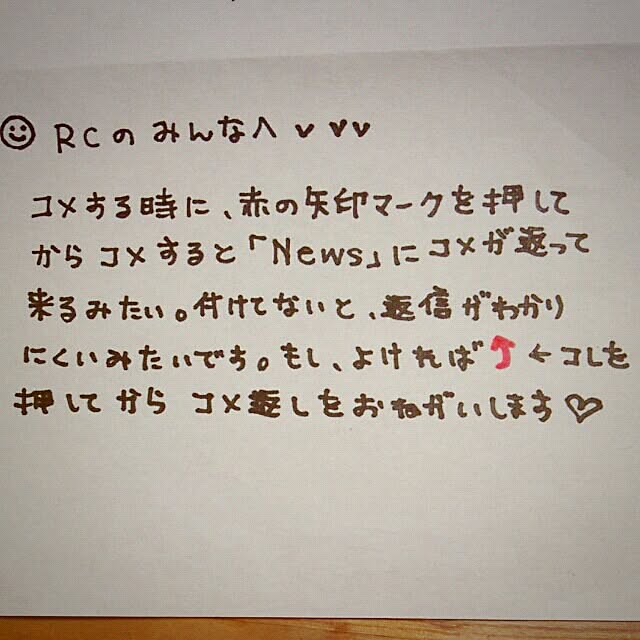 ☺ RCのみんなへ♥♥♥
コメする時に、赤の矢印マークを押して
からコメすると「News」にコメが返って
来るみたい。付けてないと、返信がわかり
にくいみたいです。もし、よければ⤴←コレを
押してから コメ返しをおねがいします♡